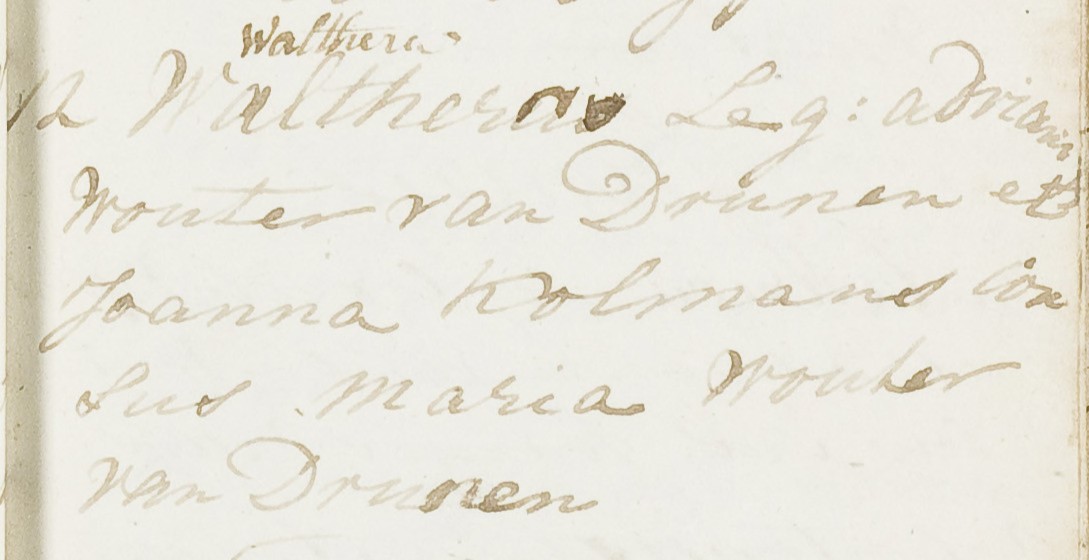 Walthera
12 Walthera Leg: adriani
Wouter van Drunen et
Joanna Kolmans Con
Sus Maria Wouter
van Drunen